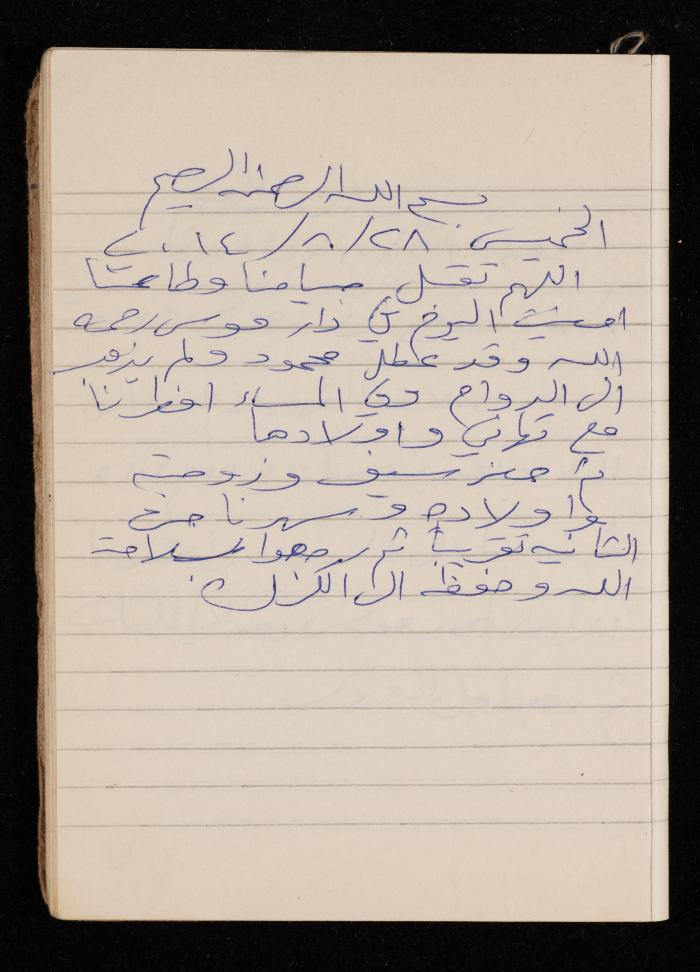 بسم الله الرحمن الرحيم
الخميس ٢٨/٨/٢٠١٤
اللهم تقبل صيامنا وطاعتنا
امضيت اليوم في دار موسى رحمه
الله وقد عطل محمود ولم يذهب
الى الدوام وفي المساء افطرنا
مع تهاني واولادها
ثم حضر سيف وزوجته
واولاده وسهرنا حتى
الثانيه تقريباً ثم رجعوا بسلامة
الله وحفظه الى الكرك.